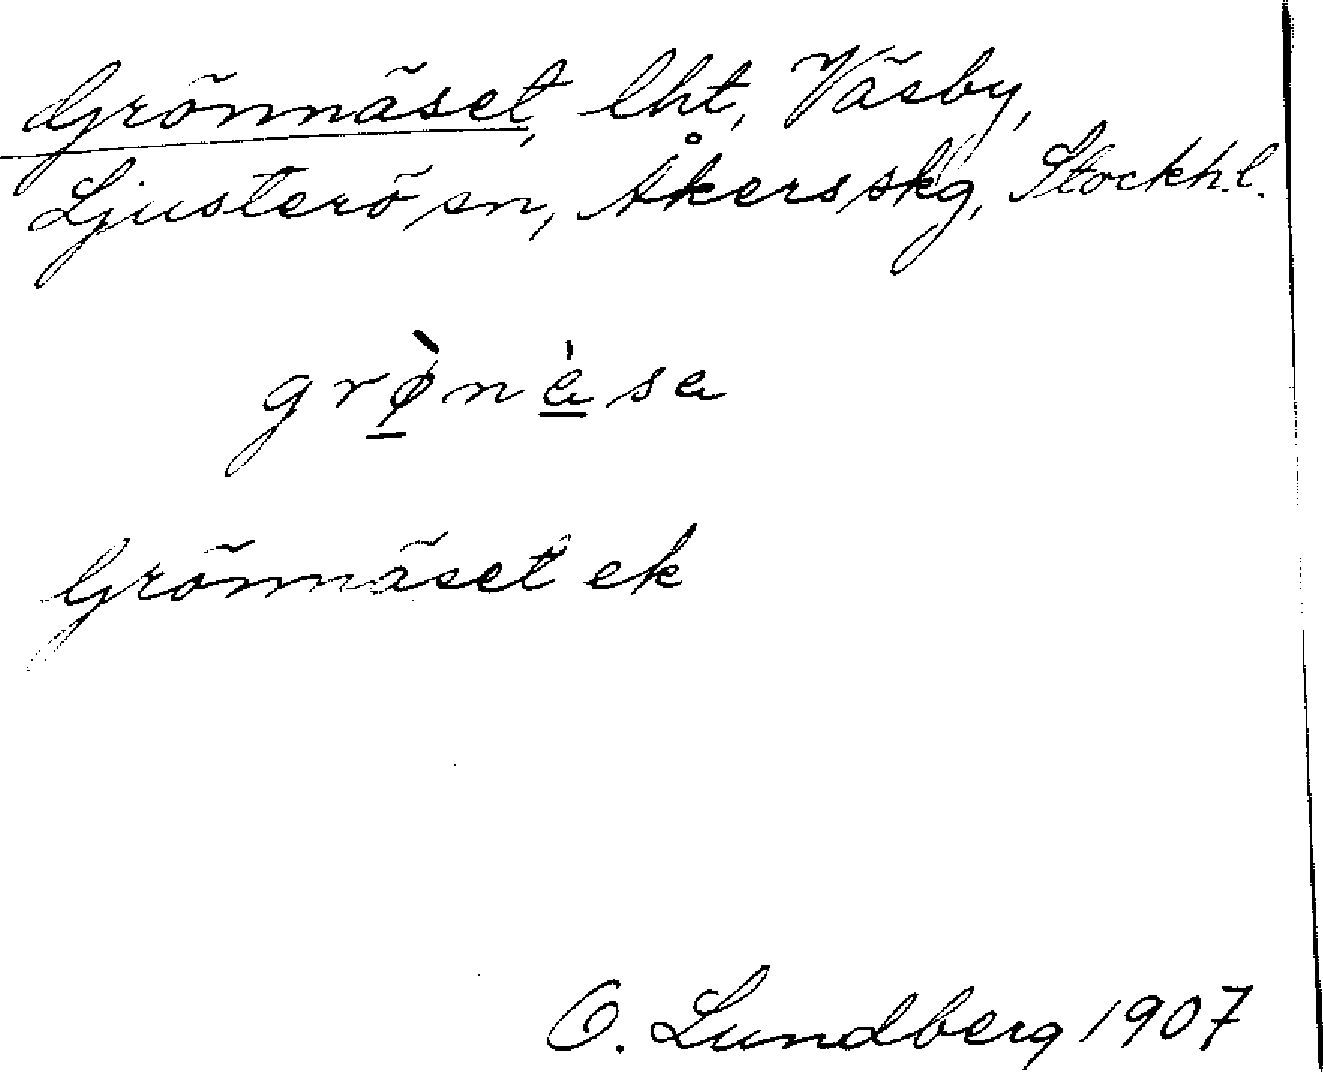 Grönnäset, lht, Väsby,
Ljusterö sn, Åkers skg, Stockh.l.
grø̀nàsa
Grönnäset ek
O. Lundberg 1907